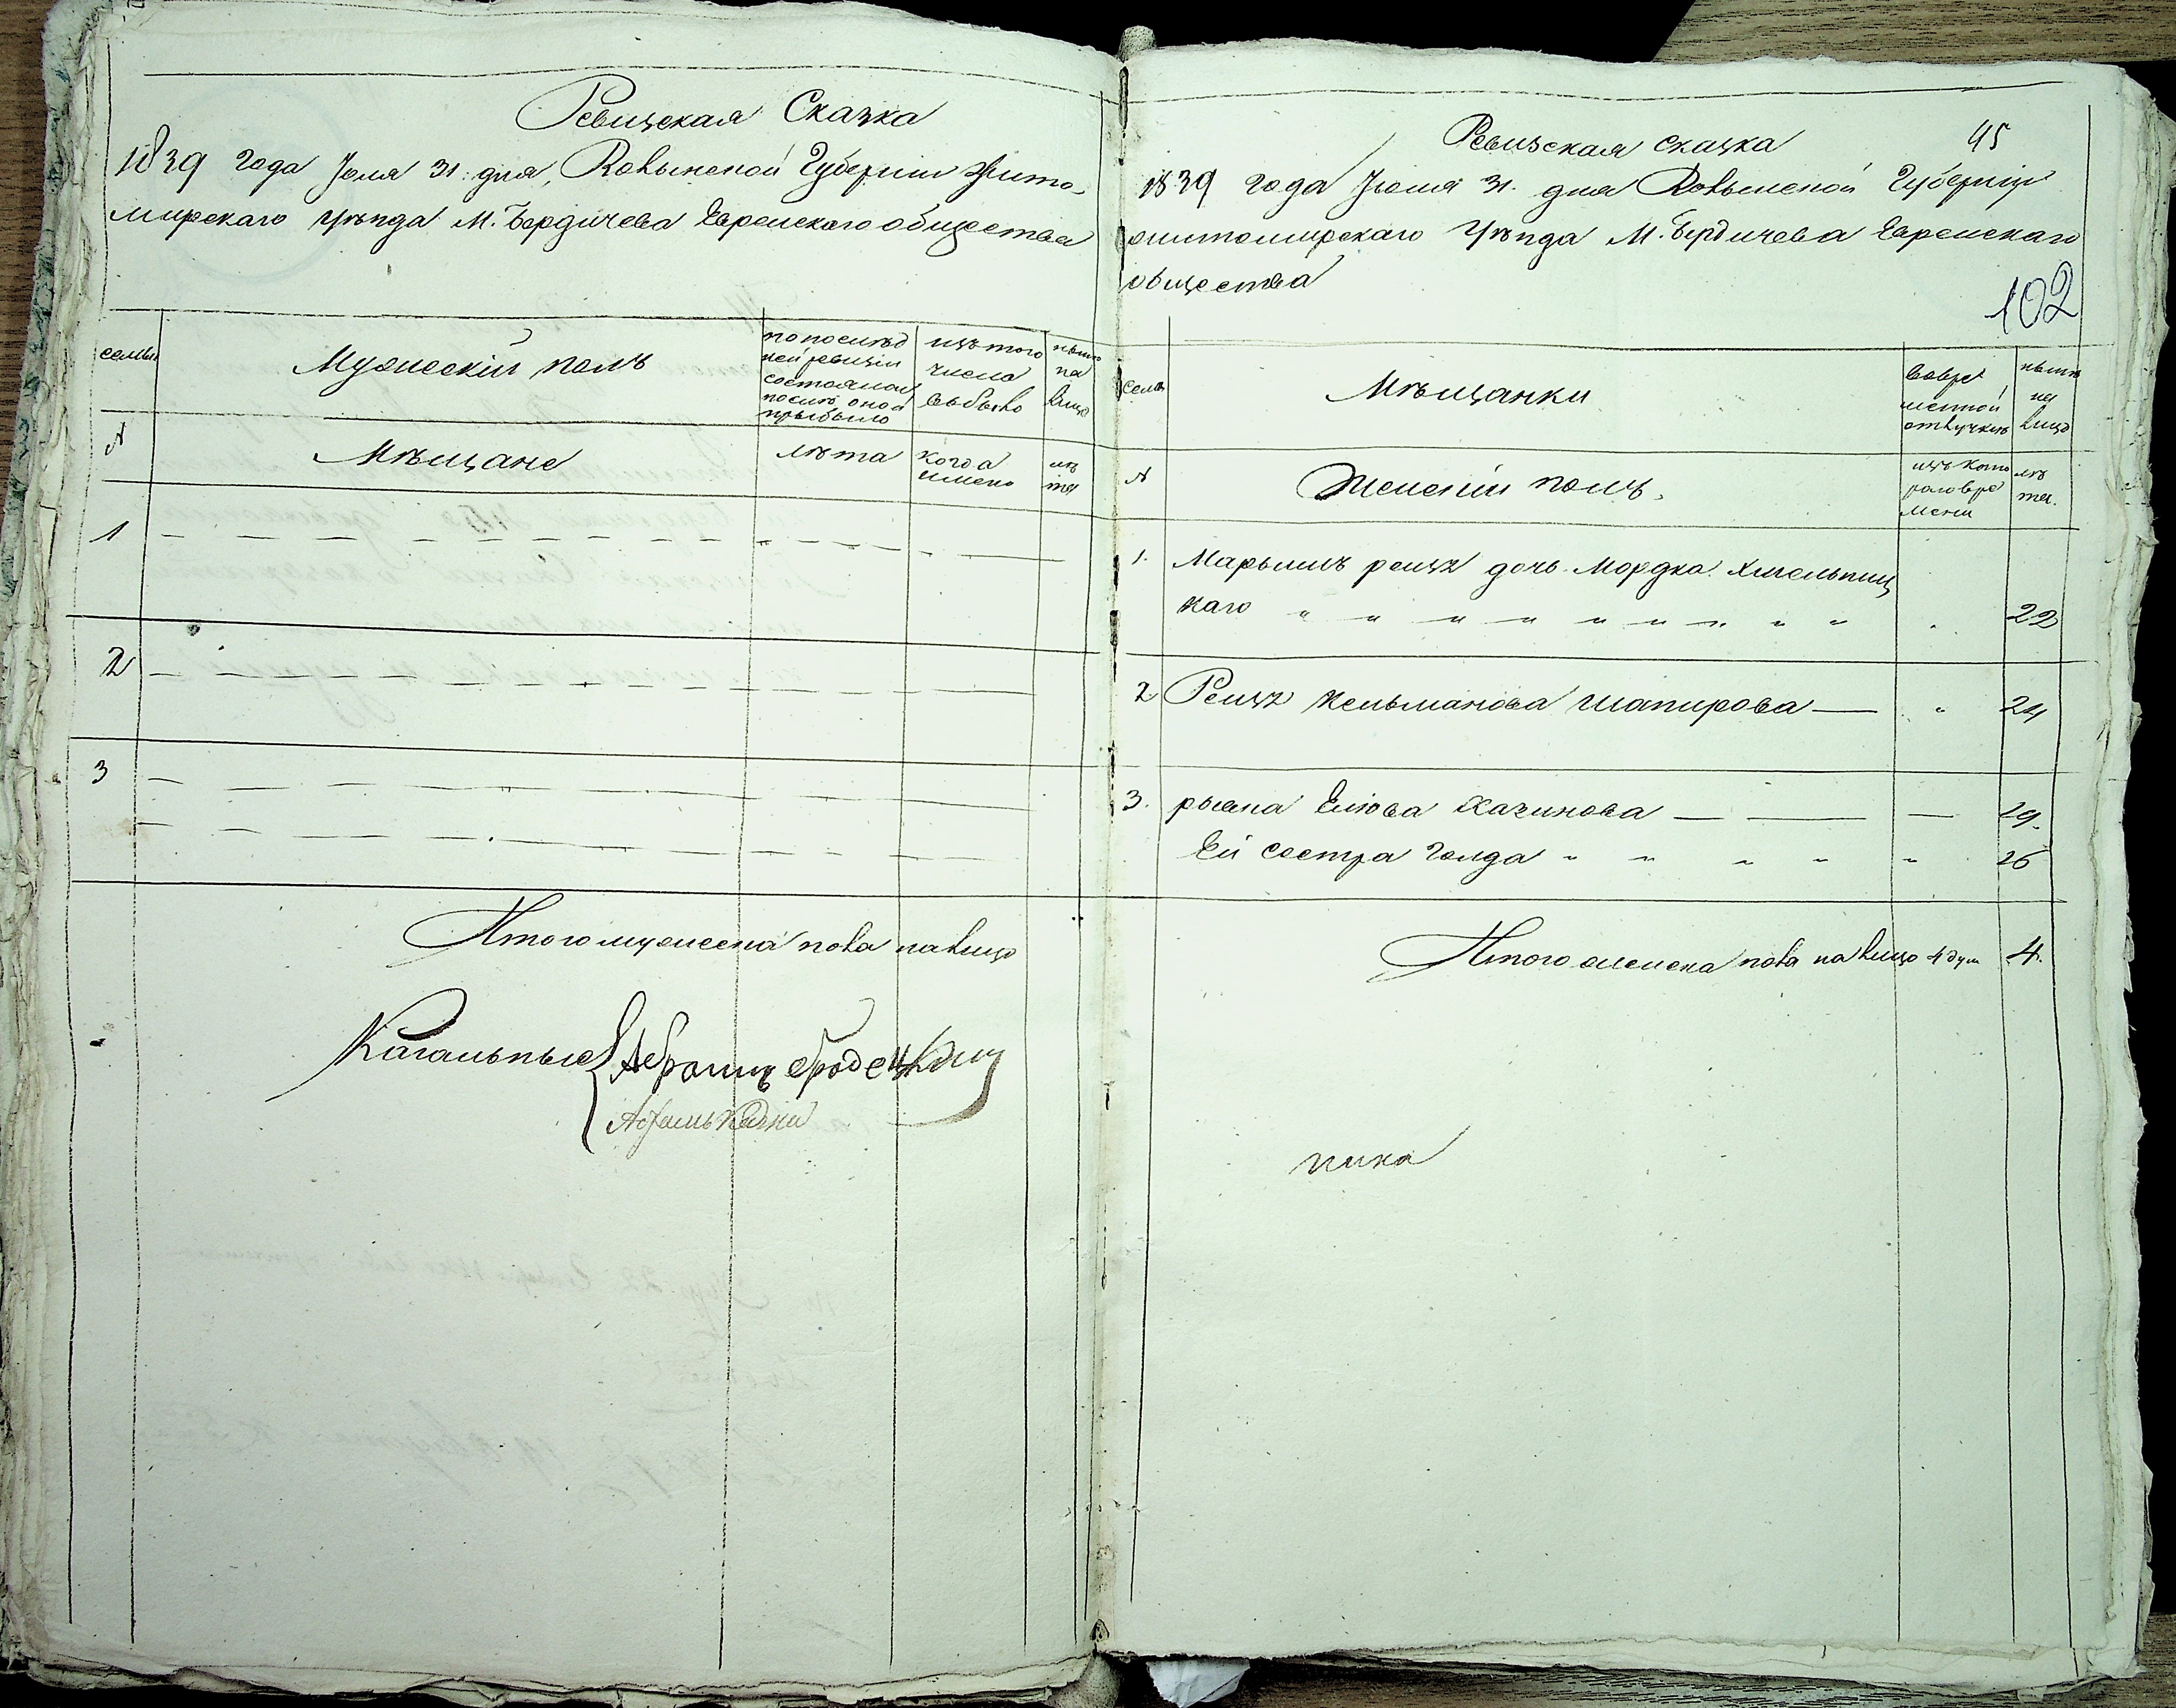 Ревизская Сказка
1839 года Іюля 31. дня, Волынской Губерніи Жито-
мирскаго уѣзда М. Бердичева Еврейскаго общества
семьи
Мужескій полъ
по послѣд
ней ревизіи
состояло и
послѣ оной
прыбыло
изъ того
числа
выбыло
нынѣ
на
лицо
№
Мѣщане
лѣта
когда
имено
лѣ
та
1
2
3
Итого мужеска пола налицо
Кагальные
Абрамъ Бродецкій
Ревизская сказка
45
1839 года Іюля 31. дня Волынской Губерніи
житомирскаго уѣзда М. Бердичева Еврейскаго
общества
102
семьи
Мѣщанки
вовре
менной
отлучкѣ
нынѣ
на
лицо
№
Женскій полъ.
изъ кото
раго вре
мени
лѣ
та.
1. Марыимъ рейзя дочь Мордка Хмельниц
каго 22
2 Рейзя Кельманова Шапирова 24
3. рывка Еліова Хазинова 29.
Ей сестра Голда 26
Итого женска пола налицо 4 душ 4.